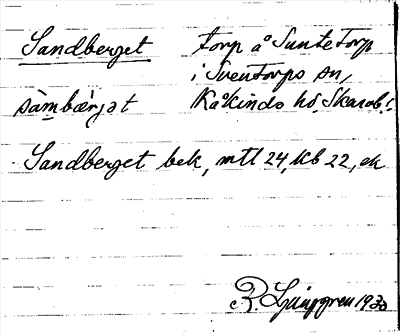 Sandberget torp å Suntetorp
i Sventorps sn,
sàmbæ̀rjət Kåkinds hd. Skarab. l.
Sandberget bek, mtl 24, kb 22, ek
R Ljunggren 1930